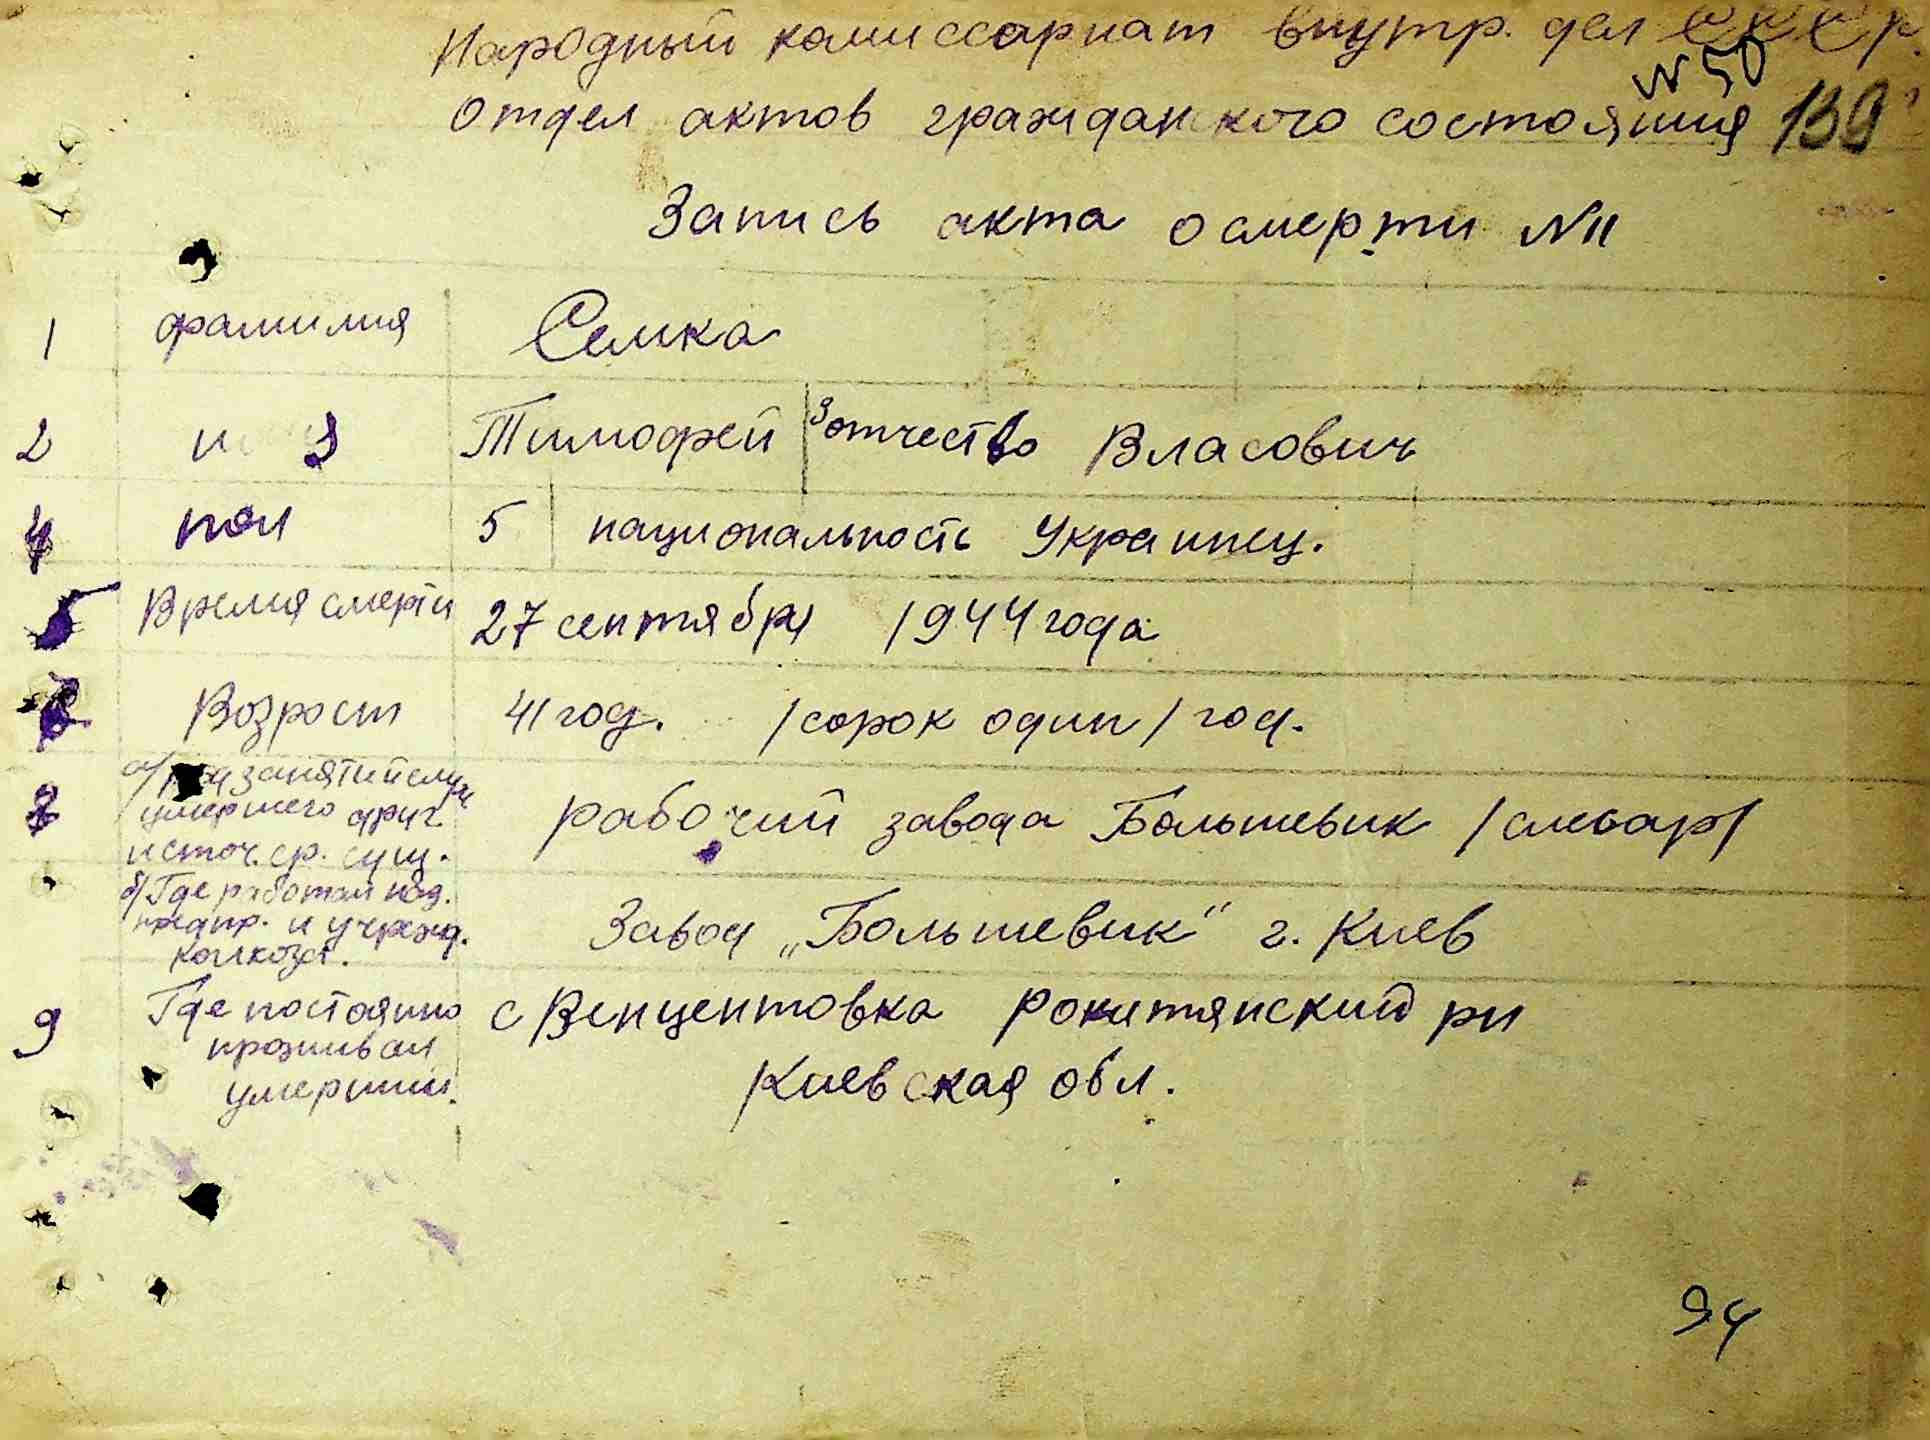 Народный комиссариат внутр. дел СССР.
N 50
Отдел актов гражданского состояния 139
Запись акта о смерти N 11
1 фамилия Семка
2 Тимофей 3 отчество Власович
4 пол 5 национальность Украинец.
Время смерти 27 сентября 1944 года
Возраст 41 год. /сорок один/ год.
а/ занятий
умершего друг. рабочий завода Большевик /слесарь/
источ. ср. сущ.
б/ Где работал наз.
предпр. и учрежд. Завод „Большевик“ г. Киев
колхоза.
9 Где постоянно с Венцентовка Рокитянский рн
проживал
умерший. Киевская обл.
94